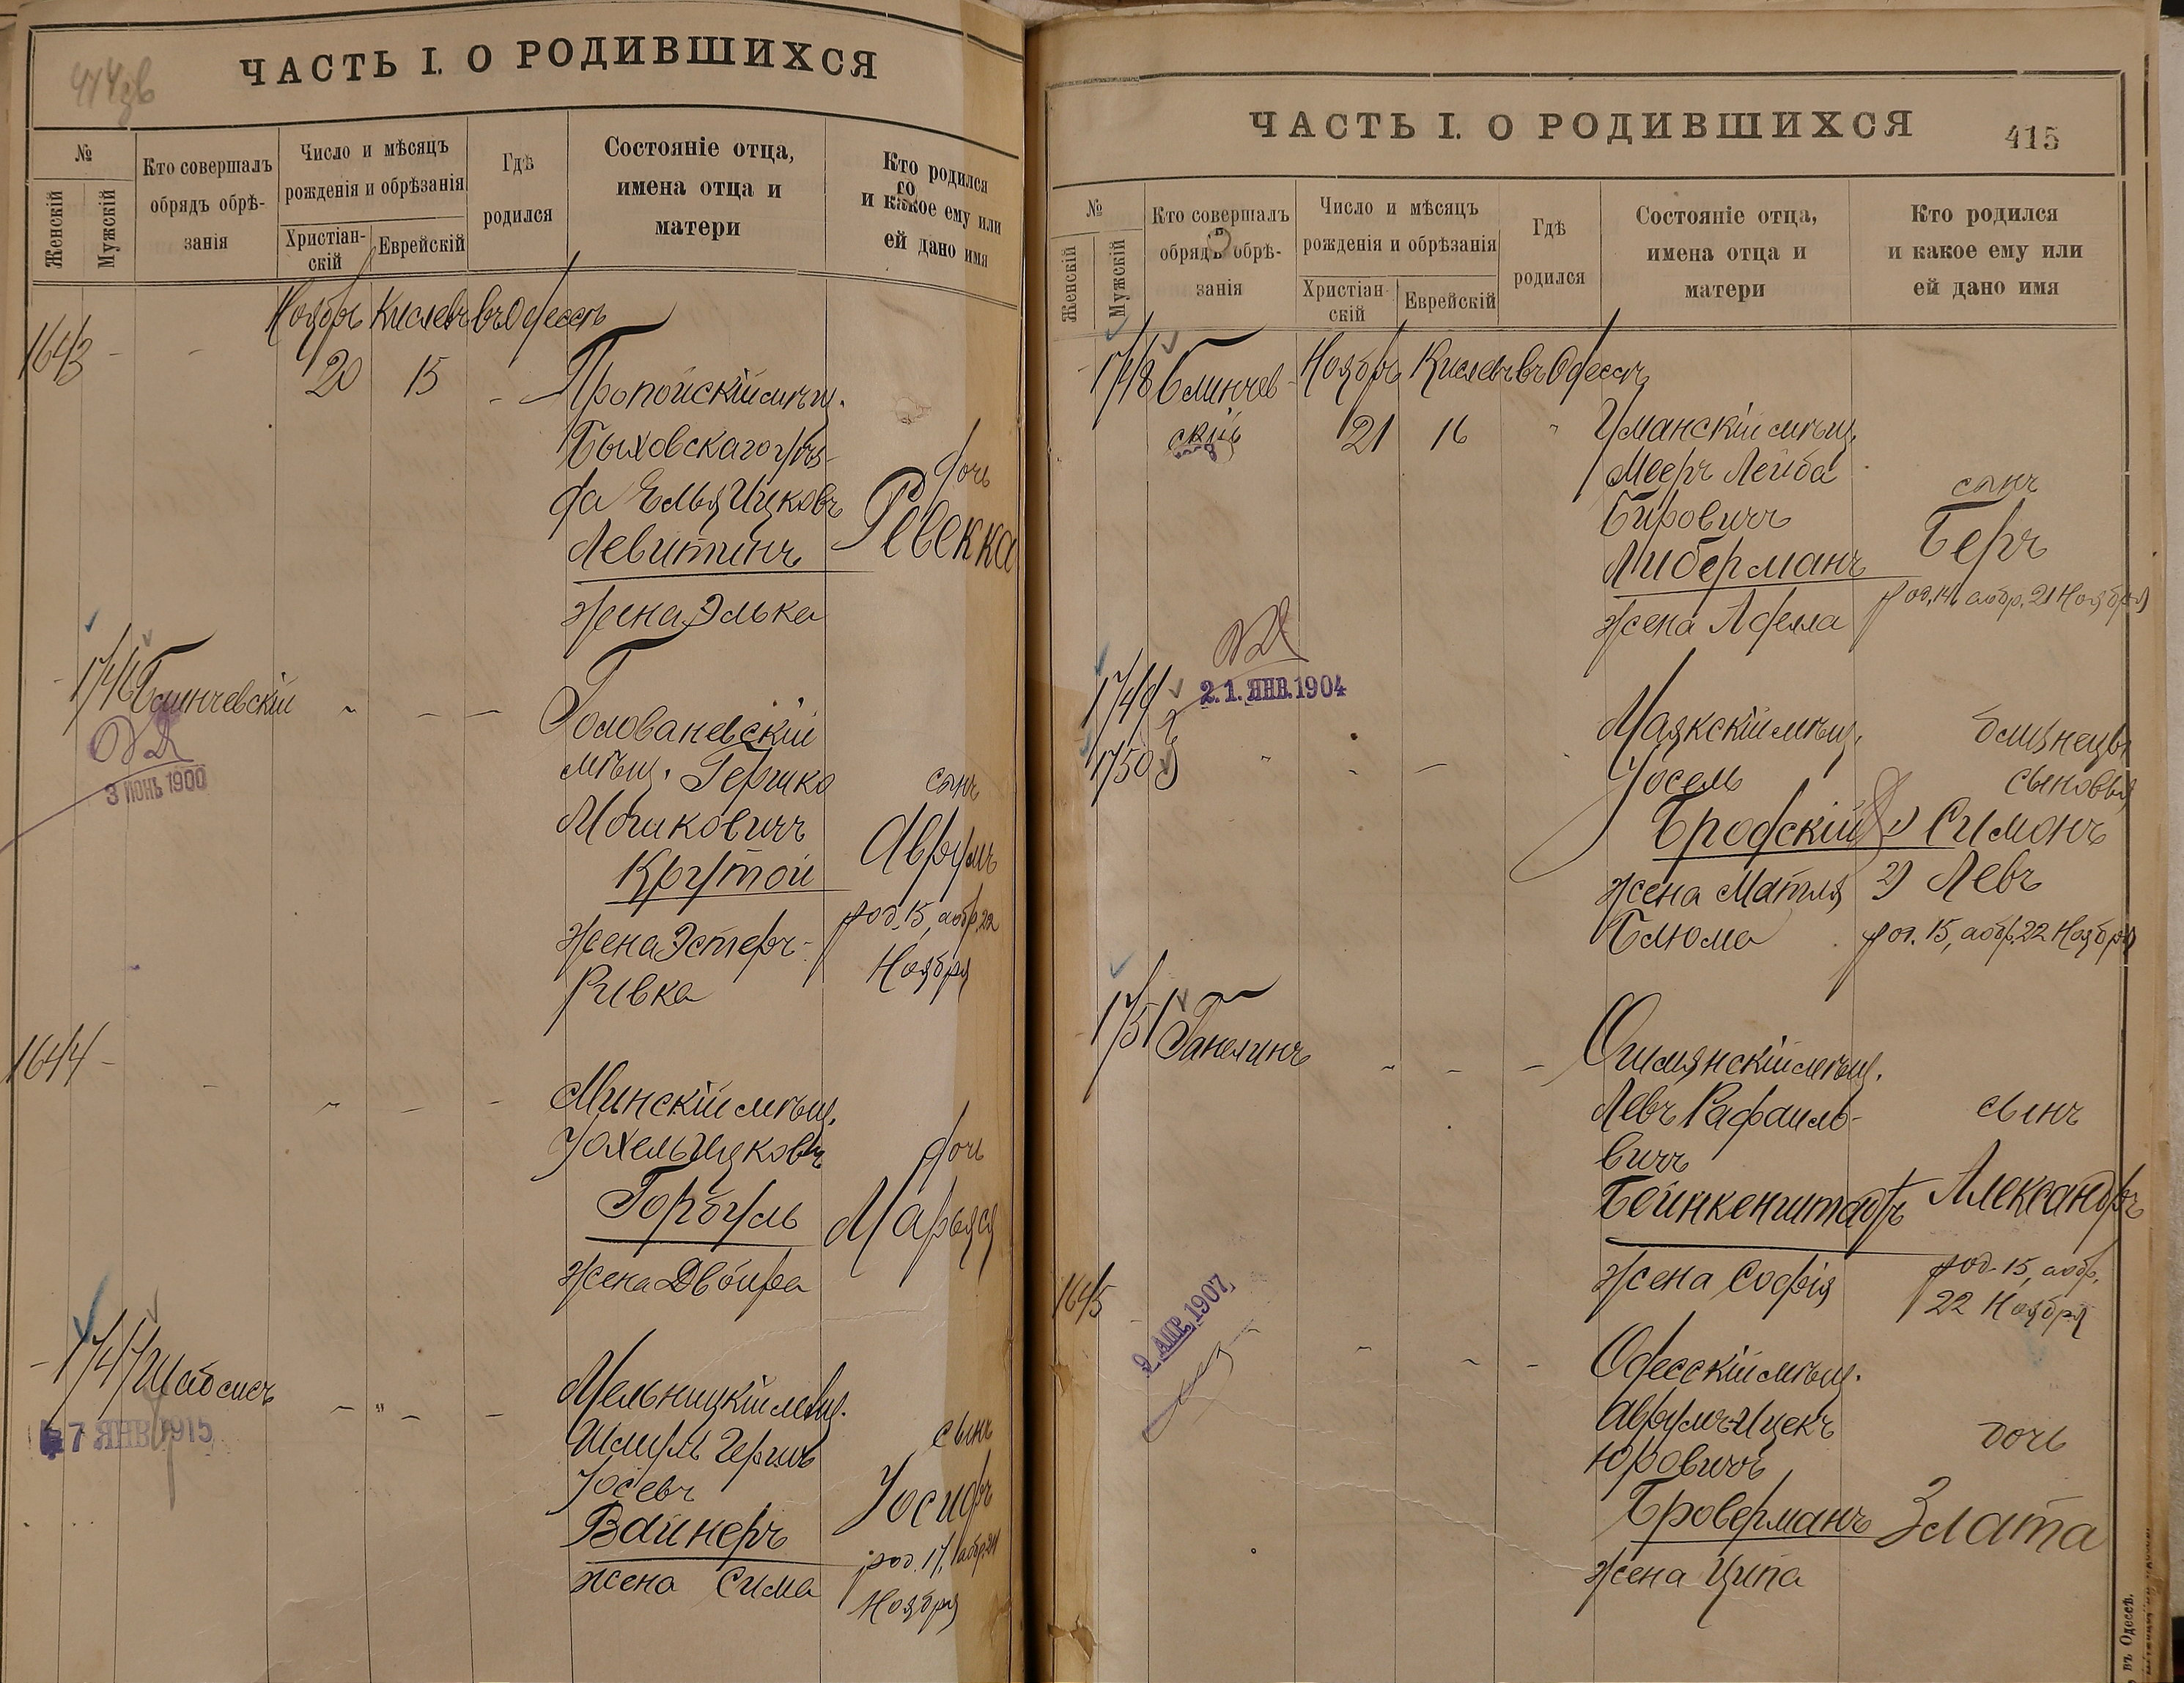 ЧАСТЬ I. О РОДИВШИХСЯ
№
Женскій
Мужскій
Кто совершалъ
обрядъ обрѣ-
занія
Число и мѣсяцъ
рожденія и обрѣзанія
Христіан-
скій
Еврейскій
Гдѣ
родился
Состояніе отца,
имена отца и
матери
Кто родился
и какое ему или
ей дано имя
Ноябрь Кислевъ въ Одессѣ
1643 - - 20 15 - Пропойскій мѣщ.
Быховскаго уѣз-
да Элья Ицковъ
Левитинъ
жена Элька
дочь
Ревекка
1746 Блинчевскій
3 ИЮНЬ 1900
Голованевскій
мѣщ. Гершко
Мошковичъ
Крутой
жена Эстеръ-
Ривка
сынъ
Аврумъ
род. 15, аобр. 22
Ноября
1644 -
Минскій мѣщ.
Іохель Ицковъ
Горбуль
жена Двойра
дочь
Марьяся
- 1747 Шабсисъ
7 ЯНВ 1915
Мельницкій мѣщ.
Шмуль Гершъ
Іосевъ
Вайнеръ
жена Сима
сынъ
Іосифъ
род. 17, аобр. 24
Ноября
ЧАСТЬ I. О РОДИВШИХСЯ
415
№
Женскій
Мужскій
Кто совершалъ
обрядъ обрѣ-
занія
Число и мѣсяцъ
рожденія и обрѣзанія
Христіан-
скій
Еврейскій
Гдѣ
родился
Состояніе отца,
имена отца и
матери
Кто родился
и какое ему или
ей дано имя
1748 Блинчев- Ноябрь Кислевъ въ Одессѣ
скій 21 16 " Уманскій мѣщ.
Мееръ Лейба
Бировичъ
Либерманъ
жена Адела
сынъ
Беръ
род. 14, аобр. 21 Ноября
1749
2.1. ЯНВ. 1904
1750
Маякскій мѣщ.
Іосель
Бродскій
жена Матля
Блюма
близнецы
сыновья
1) Симонъ
2) Левъ
род. 15, аобр. 22 Ноября
1751 Ганелинъ
Ошмянскій мѣщ.
Левъ Рафаиль-
вичъ
Бейнкенштадтъ
жена Софія
сынъ
Александръ
род. 15, аобр.
22 Ноября
1645
9 АПР. 1907
Одесскій мѣщ.
Аврумъ-Ицекъ
Юровичъ
Броверманъ
жена Ципа
дочь
Злата
въ Одессѣ.